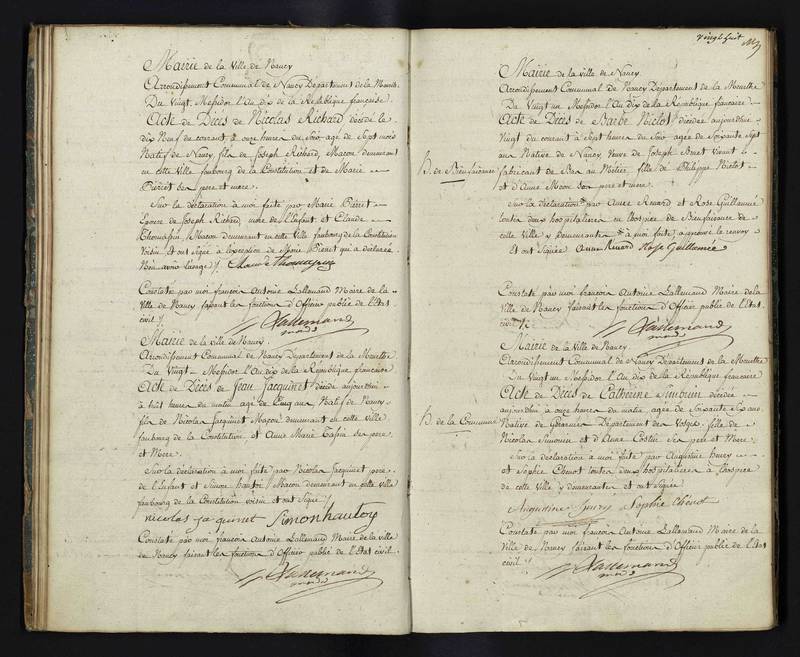 Mairie de la Ville de Nancy
Arrondissement Communal de Nancy Département de la Meurthe
Du Vingt Messidor l'An dix de la République française
Acte de Décès de Nicolas Richard décédé le
dix Neuf du courant, à onze heures du Soir agé de Sept mois
Natif de Nancy, fils de Joseph Richard, Macon demeurant
en cette Ville faubourg de la Constitution et de Marie
Pierret Ses pere et mere.
Sur la déclaration à moi faite par Marie Pierret
Epouse de Joseph Richard mere de l'Enfant et Claude
Thomassin, Macon demeurant en cette Ville faubourg de la Constitution
Voisin, Et ont Signé à l'exception de Marie Pierret qui a déclarée
Claude Thomassin
Constaté par moi françois Antoine Lallemand Maire de la
Ville de Nancy faisant les fonctions d'Officier public de l'Etat
civil
Lallemand
Mairie de la Ville de Nancy
Arrondissement Communal de Nancy Département de la Meurthe
Du Vingt Messidor l'An dix de la République française
Acte de Décès de Jean Jacquinet décédé aujourdhui
à huit heures du matin agé de Cinq ans, Natif de Nancy
fils de Nicolas Jacquinet Maçon demeurant en cette Ville
faubourg de la Constitution, et Anne Marie Ses pere
et Mere.
Sur la déclaration à moi faite par Nicolas Jacquinet pere
de l'Enfant et Simon hautoy Macon demeurant en cette Ville
faubourg de la Constitution voisin et ont Signé
nicolas jaquinet Simon hautoy
Constaté par moi françois Antoine Lallemand Maire de la Ville
de Nancy faisant les fonctions d'Officier public de l'Etat civil
Lallemand
Vingt huit
Mairie de la ville de Nancy
Arrondissement Communal de Nancy Département de la Meurthe
Du Vingt un Messidor l'An dix de la République française
Acte de Décès de Barbe Niclot décédée aujourdhui
Vingt du courant à Sept heures du Soir agée de Soixante Sept
ans Native de Nancy, Veuve de Joseph Vivant
H. de Bienfaisance
fabricant de Bas au Métier, fille de Philippe Niclot
et d'Anne Macon Ses pere et mere.
Sur la déclaration par Anne Renard et Rose Guillemée
toutes deux hospitalieres en l'hospice de Bienfaisance de
cette Ville y demeurantes à moi faite approuvé le renvoy
Et ont Signées Anne Renard Rose Guillemée
Constaté par moi françois Antoine Lallemand Maire de la
Ville de Nancy faisant les fonctions d'Officier public de l'Etat
civil
Lallemand
Mairie de la Ville de Nancy
Arrondissement Communal de Nancy Département de la Meurthe
Du Vingt un Messidor l'An dix de la République française
Acte de Décès de Catherine décédée
H. de la Commune
aujourdhui à onze heures du matin, agée de Soixante Six ans
Native de Département des Vosges, fille de
Nicolas et d'Anne Ses pere et Mere.
Sur la déclaration à moi faite par Augustine henry
et Sophie Chenot toutes deux hospitalieres à l'hospice
de cette Ville y demeurantes et ont Signées
Augustine henry Sophie Chenot
Constaté par moi françois Antoine Lallemand Maire de la
Ville de Nancy faisant les fonctions d'Officier public de l'Etat
civil
Lallemand